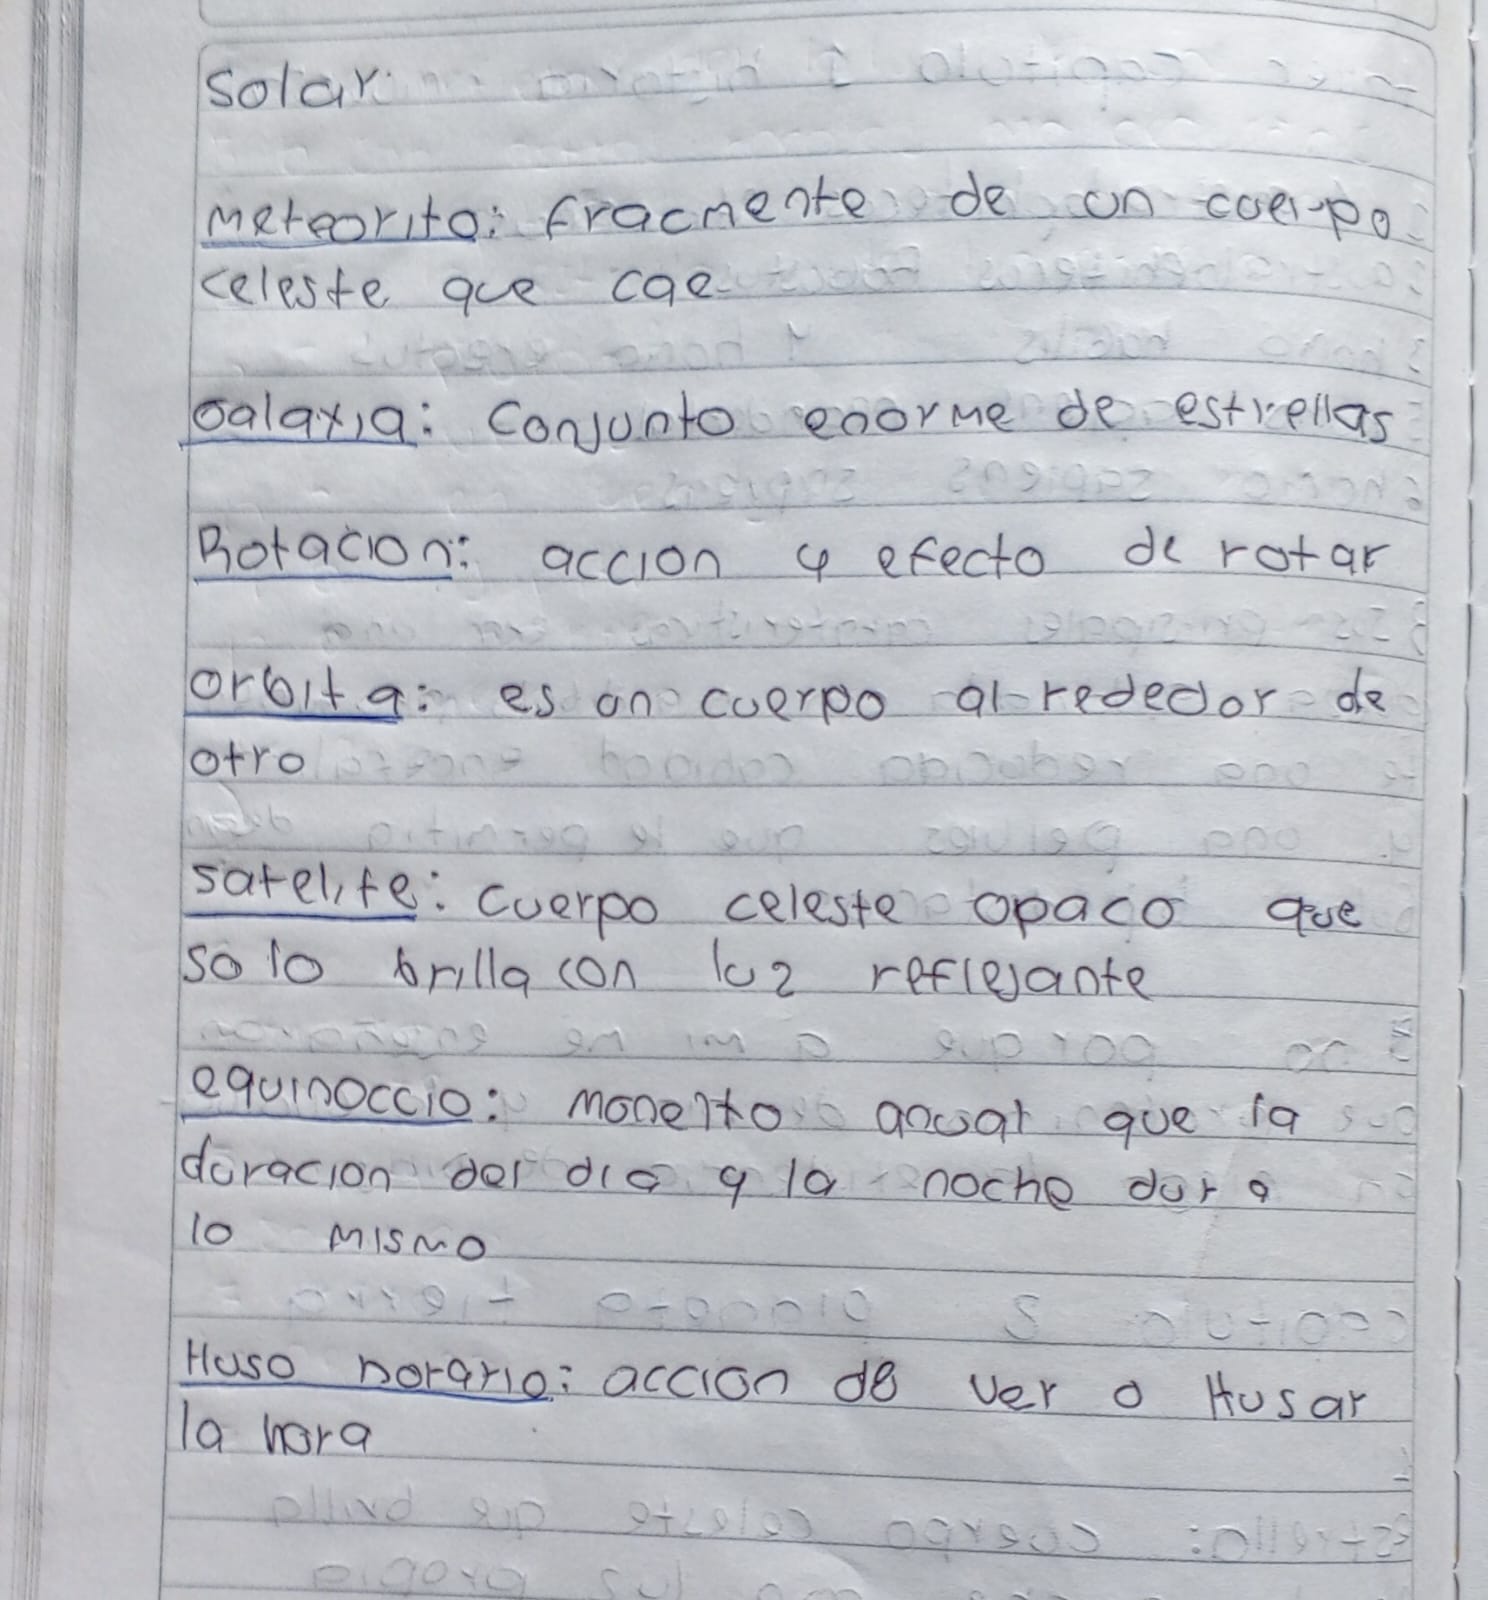 solar
Meteorito: fracmente de un cuerpo
celeste que cae
Galaxia: Conjunto enorme de estrellas
Rotacion: accion y efecto de rotar
orbita: es un cuerpo alrededor de
otro
satelite: cuerpo celeste opaco que
solo brilla con luz reflejante
equinoccio: monento anual que la
duracion del dia y la noche dura
lo mismo
Huso horario: accion de ver o Husar
la hora